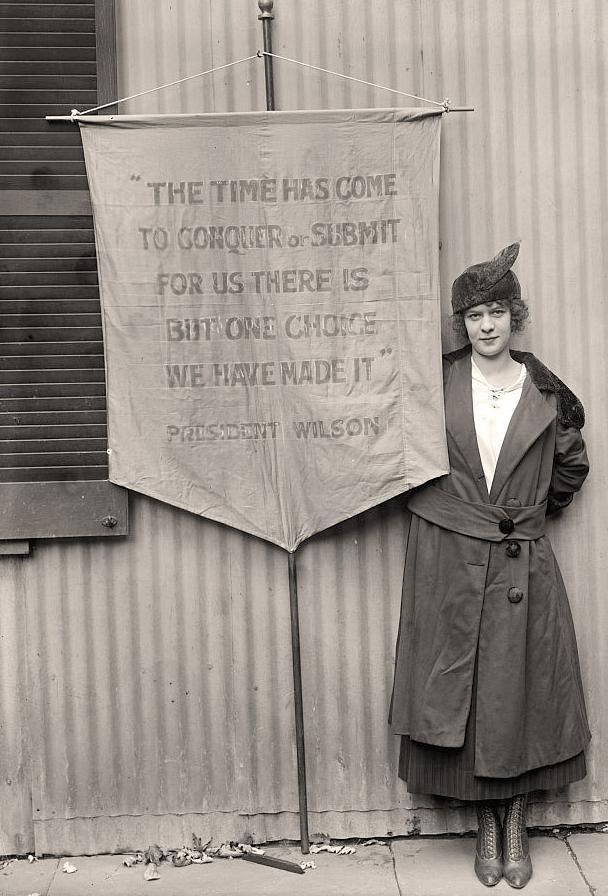 "THE TIME HAS COME
TO CONQUER or SUBMIT
FOR US THERE IS
BUT ONE CHOICE
WE HAVE MADE IT"
PRESIDENT WILSON